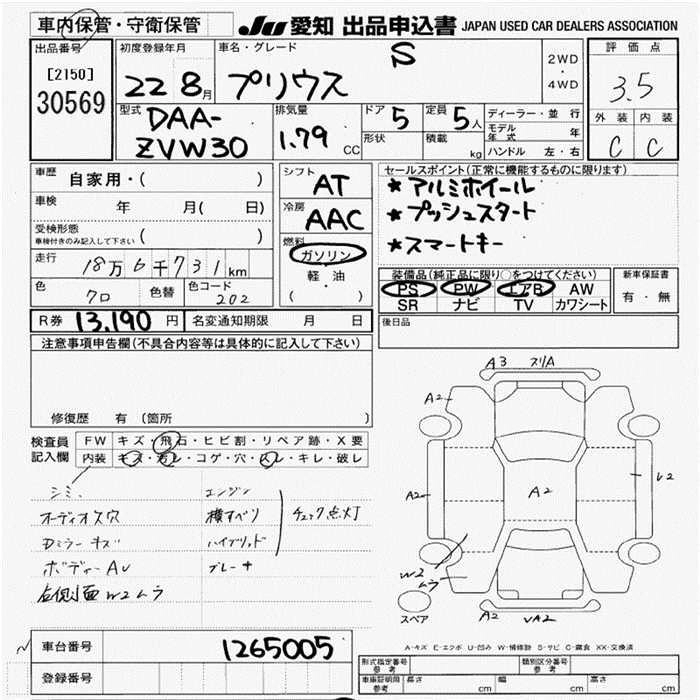 車内保管・守衛保管
JU 愛知 出品申込書 JAPAN USED CAR DEALERS ASSOCIATION
出品番号
[2150]
30569
初度登録年月
22 8月
車名・グレード
プリウス S
2WD
・
4WD
評価点
3.5
外装 内装
C C
型式
DAA-
ZVW30
排気量
1.79 CC
ドア 5
定員 5人
形状
積載 kg
ディーラー・並行
モデル年式 年
ハンドル 左・右
車歴 自家用・( )
車検 年 月( 日)
受検形態
車検付きのみ記入して下さい ( )
走行 18万6千731km
色 クロ 色替 色コード 202
シフト AT
冷房 AAC
燃料
ガソリン
軽・油
( )
セールスポイント(正常に機能するものに限ります)
★アルミホイール
★プッシュスタート
★スマートキー
装備品(純正品に限り○をつけてください)
PS PW エアB AW
SR ナビ TV カワシート
新車保証書
有・無
後日品
R券 13,190円 名変通知期限 月 日
注意事項申告欄(不具合内容等は具体的に記入して下さい)
修復歴 有 (箇所
検査員
記入欄
FW キズ・飛石・ヒビ割・リペア跡・X要
内装 キズ・汚レ・コゲ・穴・スレ・キレ・破レ
シミ、
オーディオス穴
Dミラーキズ
ボディーAU
左側面W2ムラ
エンジン
横すべり
ハイブリッド
ブレーキ
チェック点灯
A3 スリA
A2
A2
A2
U2
W2
ムラ
スペア
A2 UA2
A-キズ E-エクボ U-凹み W-補修跡 S-サビ C-腐食 XX-交換済
車台番号 1265005
登録番号
形式指定番号
参考
類別区分番号
参考
車庫証明用
参考
長さ cm 幅 cm 高さ cm